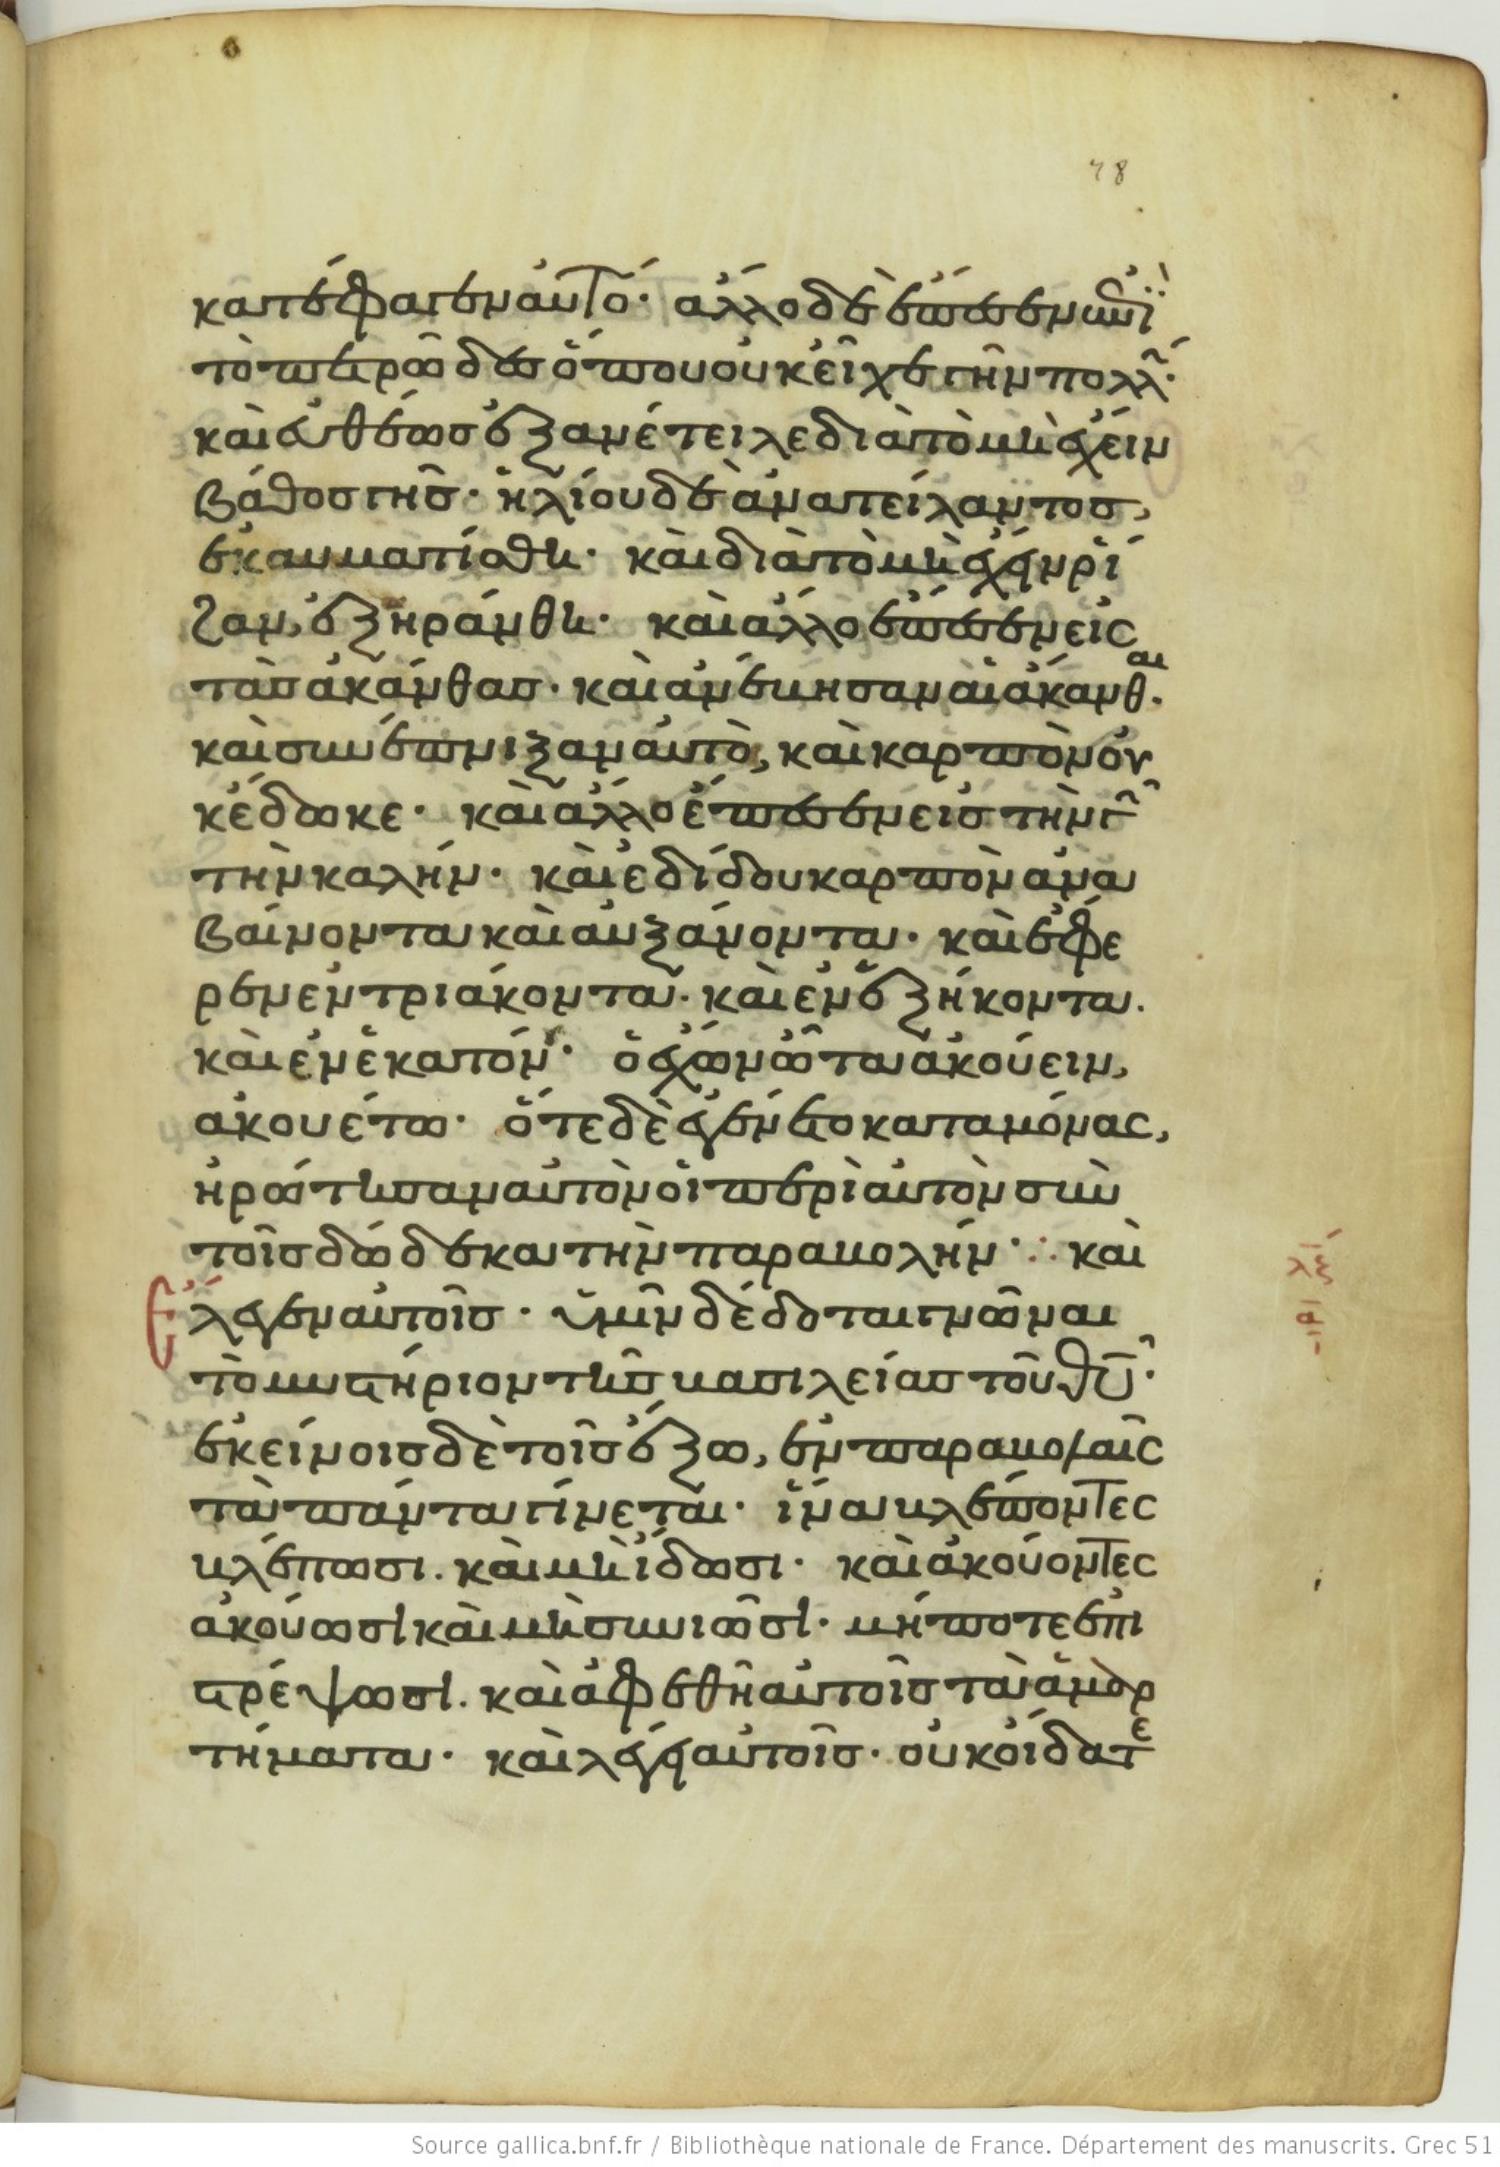 78
κατέφαγεν αὐτό· ἄλλο δὲ ἔπεσεν ἐπὶ
τὸ πετρῶδεσ ὅπου οὐκ εἶχε γῆν πολλ·
καὶ εὐθέωσ ἐξανέτειλε διὰ τὸ μὴ ἔχειν
βάθοσ γῆσ· ἡλίου δὲ ἀνατείλαντοσ,
ἐκαυματίσθη· καὶ διὰ τὸ μὴ ἔχειν ῥί
ζαν, ἐξηράνθη· καὶ ἄλλο ἔπεσεν εἰς
τὰσ ἀκάνθασ· καὶ ἀνέβησαν αἱ ἄκανθαι·
καὶ συνέπνιξαν αὐτὸ, καὶ καρπὸν οὐ
κ ἔδωκε· καὶ ἄλλο ἔπεσεν εἰσ τὴν γῆ
τὴν καλήν· καὶ ἐδίδου καρπὸν ἀνα
βαίνοντα καὶ αὐξάνοντα· καὶ ἔφε
ρεν ἐν τριάκοντα· καὶ ἐν ἑξήκοντα.
καὶ ἐν ἑκατόν· ὁ ἔχων ὦτα ἀκούειν,
ἀκουέτω· ὅτε δὲ ἐγένετο καταμόνας,
ἠρώτησαν αὐτὸν οἱ περὶ αὐτὸν σὺν
τοῖσ δώδεκα τὴν παραβολήν· καὶ
ἔλεγεν αὐτοῖσ· ὑμῖν δέδοται γνῶναι
τὸ μυστήριον τῆσ βασιλείασ τοῦ θυ·
ἐκείνοισ δὲ τοῖσ ἔξω, ἐν παραβολαῖς
τὰ πάντα γίνεται· ἵνα βλέποντες
βλέπωσι. καὶ μὴ ἴδωσι· καὶ ἀκούοντες
ἀκούωσι καὶ μὴ συνιῶσι· μήποτε ἐπι
στρέψωσι. καὶ ἀφεθῆ αὐτοῖσ τὰ ἁμαρ
τήματα· καὶ λέγει αὐτοῖσ· οὐκ οἴδατε
λξ
Source gallica.bnf.fr / Bibliothèque nationale de France. Département des manuscrits. Grec 51